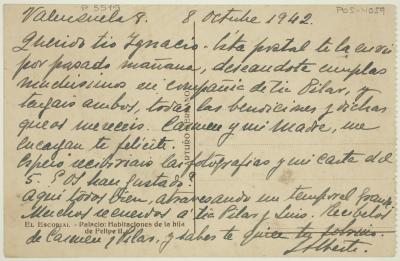 P 5519
POS-4059
Valenzuela 8. 8 Octubre 1942.
Querido tio Ignacio. Esta postal te la envio
por pasado mañana, deseandote cumplas
muchisimos en compania de tia Pilar, y
tengais ambos, todas las bendiciones y dichas
que os mereceis. Carmen y mi Madre, me
encargan te felicite.
Espero recibiriais las fotografias y mi carta del
5. ¿Os han gustado?
Aqui todos bien, atravesando un temporal
Muchos recuerdos a tia Pilar y Luis. Recibelos
EL ESCORIAL - Palacio: Habitaciones de la hija
de Felipe II
de Carmen y Pilar, y sabes te quiere tu sobrino
Alberto.